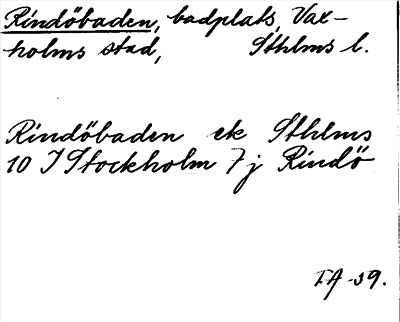 Rindöbaden, badplats, Vax-
holms stad, Sthlms l.
Rindöbaden ek Sthlms
10 I Stockholm 7 j Rindö
T.A -39.